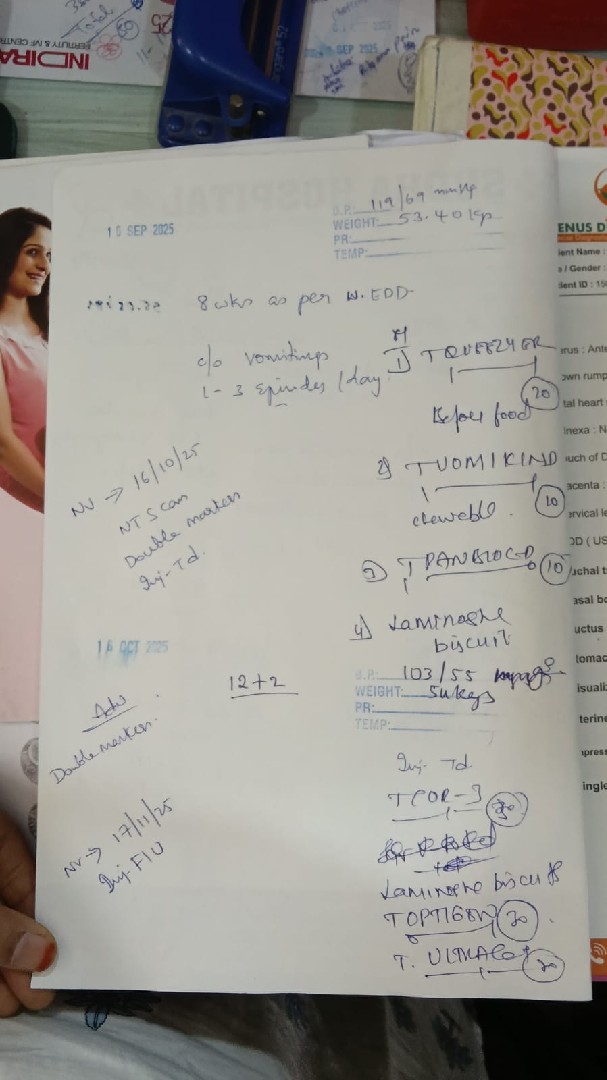 INDIRA
FERTILITY & IVF CENTR
Total
SEP 2025
HOSPITAL
15 SEP 2025
B.P: 119/69 mmHg
WEIGHT: 53.40 kg
PR:
TEMP:
8 wks as per W.EDD
c/o vomitings
1-3 Episodes / day
1)
20
Before food
NV → 16/10/25
NT Scan
Double marker
Inj-Td.
2) T VOMIKIND
10
chewable.
3) T PANBLOC-D
10
4) Laminashe
biscuit
16 OCT 2025
12+2
B.P: 103/55 mmHg
WEIGHT: 54kgs
PR:
TEMP:
Adv
Double marker.
Inj- Td
T COR-3
30
Laminashe biscuits
30
T.
30
NV → 17/11/25
Inj-FIU
ENUS D
ient Name :
e / Gender :
tient ID : 15
erus : Ante
own rump
tal heart
nexa : N
uch of D
acenta :
ervical le
DD ( US
uchal t
asal bo
uctus
tomac
isuali
terine
mpres
ingle